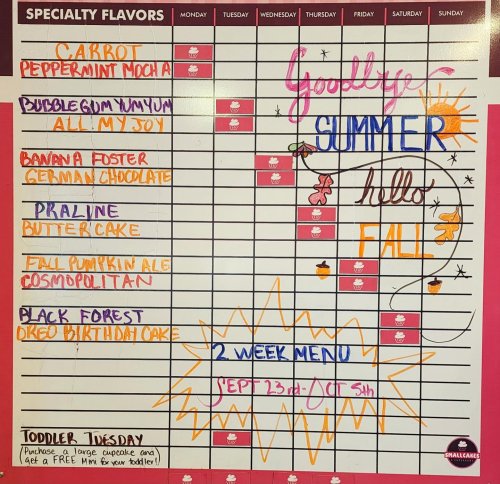 SPECIALTY FLAVORS MONDAY TUESDAY WEDNESDAY THURSDAY FRIDAY SATURDAY SUNDAY
CARROT
PEPPERMINT MOCHA
Goodbye
BUBBLEGUM YUMYUM
ALL MY JOY
SUMMER
BANANA FOSTER
GERMAN CHOCOLATE
hello
PRALINE
BUTTER CAKE
FALL
FALL PUMPKIN ALE
COSMOPOLITAN
BLACK FOREST
OREO BIRTHDAY CAKE
2 WEEK MENU
SEPT 23rd-OCT 5th
TODDLER TUESDAY
(Purchase a large cupcake and
get a FREE Mini for your toddler!)
SMALLCAKES